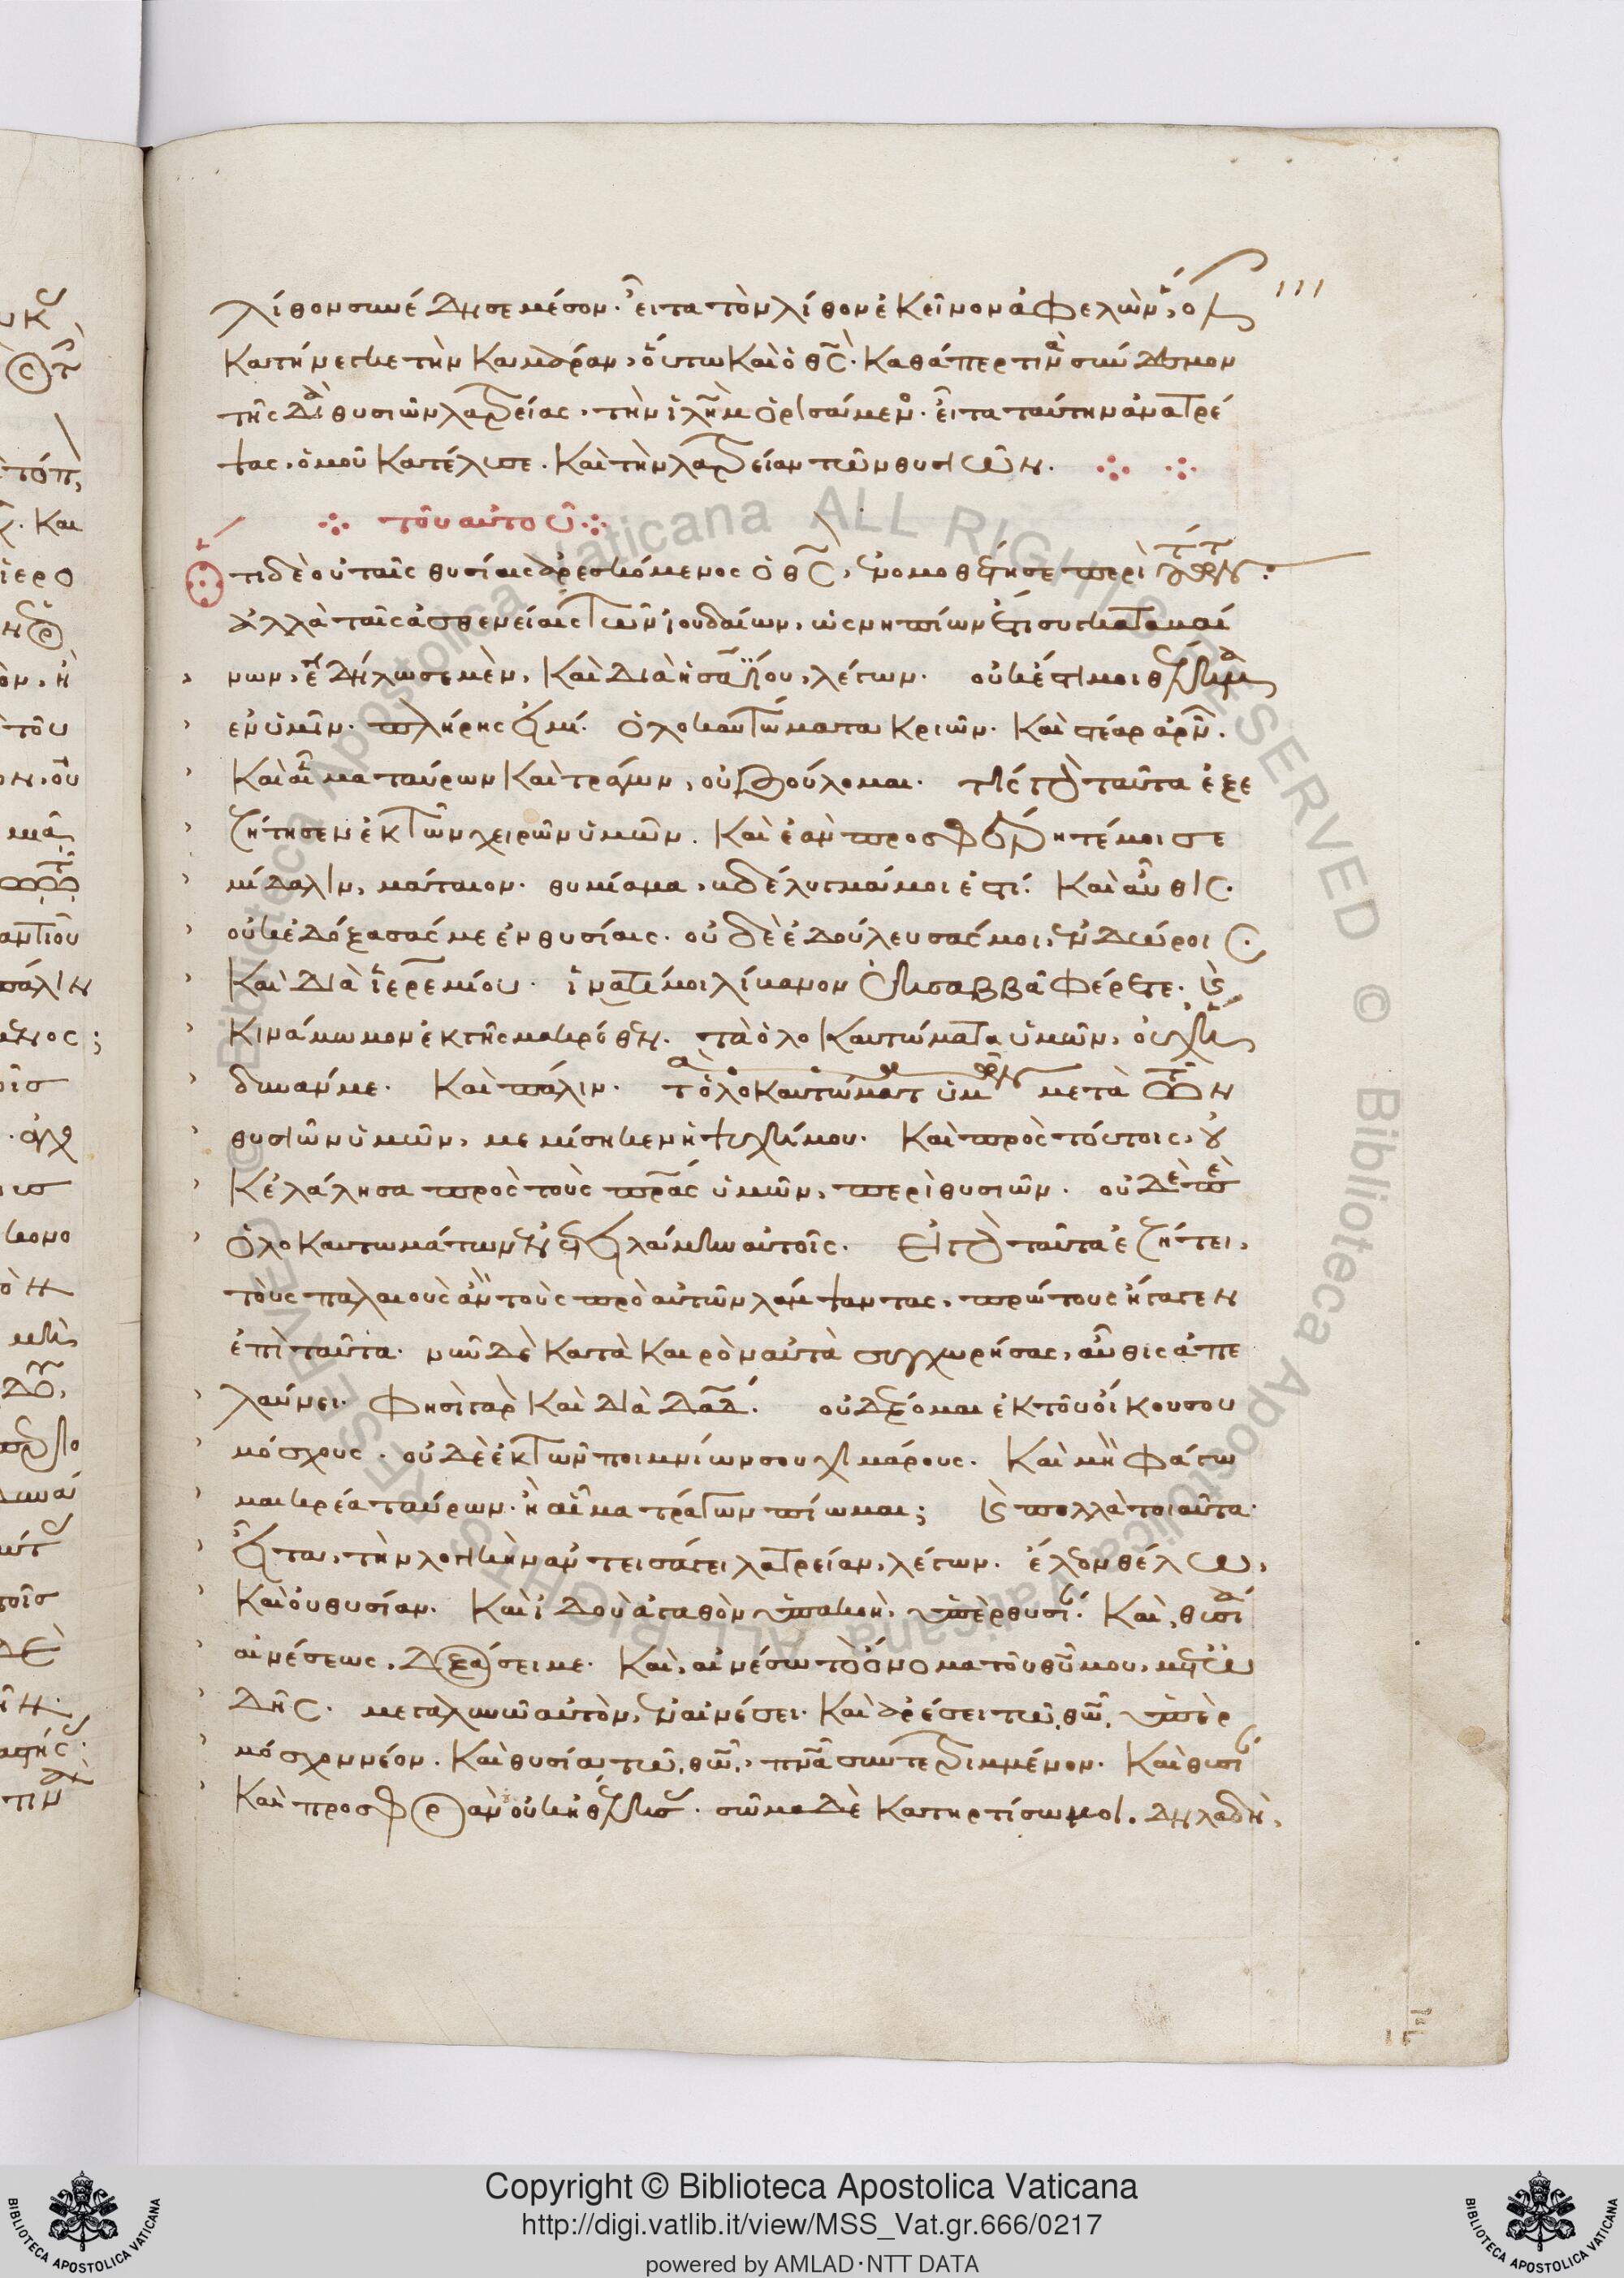 λίθον συνέδησε μέσον· εἶτα τὸν λίθον ἐκεῖνον ἀφελὼν, ὅλ
111
κατήνεγκε τὴν καμάραν, οὕτω καὶ ὁ θς· καθάπερ τινὰ σύνδεσμον
τῆς διὰ θυσιῶν λατρείας, τὴν ἱλὴμ ὁρισάμεν· εἶτα ταύτην ἀνατρέ
ψας, ὁμοῦ κατέλυσε καὶ τὴν λατρείαν τῶν θυσιῶν.
τοῦ αὐτοῦ
τι δὲ οὐ ταῖς θυσίαις ἀρεσκόμενος ὁ θς, ἐνομοθέτησε περὶ τούτων·
ἀλλὰ ταῖς ἀσθενείαις τῶν ἰουδαίων, ὡς νηπίων ἔτι συγκαταβαί
νων, ἐδήλωσε μὲν, καὶ διὰ ἡσαΐου, λέγων· οὐκ ἔστι μοι θέλημα
ἐν ὑμῖν· πλήρης εἰμί· ὁλοκαυτώματα κριῶν· καὶ στέαρ ἀρνῶν·
καὶ αἷμα ταύρων καὶ τράγων, οὐ βούλομαι· τίς γὰρ ταῦτα ἐξε
ζήτησεν ἐκ τῶν χειρῶν ὑμῶν. καὶ ἐὰν προσφέρητέ μοι σε
μίδαλιν, μάταιον· θυμίαμα, βδέλυγμά μοι ἐστί· καὶ αὖθις·
οὐκ ἐδόξασάς με ἐν θυσίαις· οὐδὲ ἐδούλευσάς μοι, ἐν δώροις·
καὶ διὰ ἱερεμίου· ἵνα τί μοι λίβανον ἐκ σαββᾶ φέρετε· καὶ
κινάμωμον ἐκ τῆς μακρόθεν· τὰ ὁλοκαυτώματα ὑμῶν, οὐχ ἥ
δυνάν με· καὶ πάλιν· τὰ ὁλοκαυτώματα ὑμῶν μετὰ τῶν
θυσιῶν ὑμῶν, μεμίσηκεν ἡ ψυχή μου· καὶ πρὸς τούτοις, οὐ
κ ἐλάλησα πρὸς τοὺς πρας ὑμῶν, περὶ θυσιῶν· οὐδὲ περὶ
ὁλοκαυτωμάτων ἐνετειλάμην αὐτοῖς· εἰ γὰρ ταῦτα ἐζήτει,
τοὺς παλαιοὺς ἂν τοὺς πρὸ αὐτῶν λάμψαντας, πρώτους ἤγαγεν
ἐπὶ ταῦτα· νῦν δὲ κατὰ καιρὸν αὐτὰ συγχωρήσας, αὖθις ἀπε
λαύνει· φησὶ γὰρ καὶ διὰ δαδ· οὐ δέξομαι ἐκ τοῦ οἴκου σου
μόσχους· οὐδὲ ἐκ τῶν ποιμνίων σου χιμάρους· καὶ μὴ φάγω
μαι κρέα ταύρων· ἢ αἷμα τράγων πίωμαι; καὶ πολλὰ τοιαῦτα·
εἶτα, τὴν λογικὴν ἀντεισάγει λατρείαν, λέγων· ἔλεον θέλω,
καὶ οὐ θυσίαν· καὶ ἰδοὺ ἀγαθὸν ὑπακοὴ, ὑπὲρ θυσίαν· καὶ, θυσία
αἰνέσεως, δοξάσει με· καὶ, αἰνέσω τὸ ὄνομα τοῦ θυ μου, μετ' ὠ
δῆς· μεγαλυνῶ αὐτὸν, ἐν αἰνέσει· καὶ ἀρέσει τῷ θῶ, ὑπὲρ
μόσχον νέον· καὶ θυσία τῷ θῶ, πνα συντετριμμένον· καὶ θυσίαν
καὶ προσφορὰν οὐκ ἠθέλησας· σῶμα δὲ κατηρτίσω μοι. δηλαδὴ,
Copyright © Biblioteca Apostolica Vaticana
http://digi.vatlib.it/view/MSS_Vat.gr.666/0217
powered by AMLAD·NTT DATA